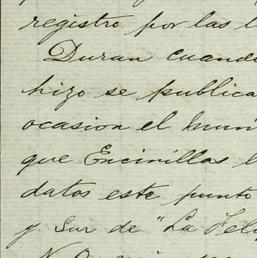 registro por las l
Duran cuando
hizo se publica
ocasion el
que Encinillas l
datos este punto
y Sur de "La Feli